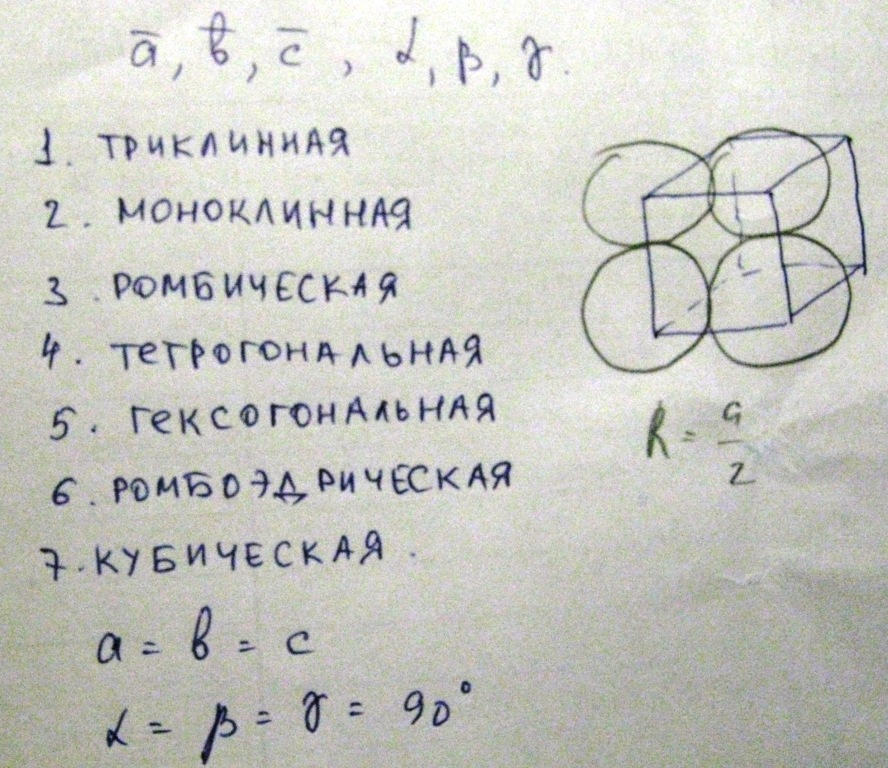 a̅, b̅, c̅, α, β, γ.
1. ТРИКЛИННАЯ
2. МОНОКЛИННАЯ
3. РОМБИЧЕСКАЯ
4. ТЕТРОГОНАЛЬНАЯ
5. ГЕКСОГОНАЛЬНАЯ
6. РОМБОЭДРИЧЕСКАЯ
7. КУБИЧЕСКАЯ.
a = b = c
α = β = γ = 90°
R = a/2